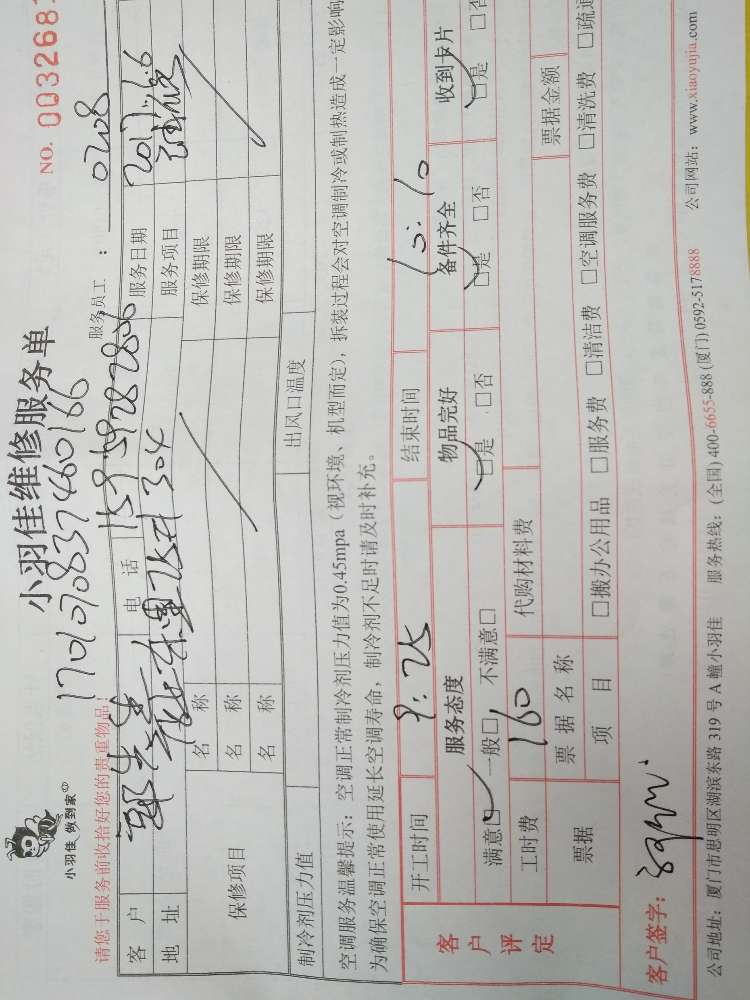 小羽佳 做到家
小羽佳维修服务单
NO. 0032683
1701070837460166
请您于服务前收拾好您的贵重物品!
服务员工: 0208
客户 电话 15959282806 服务日期 2017.6.6
地址 304 服务项目
保修项目 名称 保修期限
名称 保修期限
名称 保修期限
制冷剂压力值 出风口温度
空调服务温馨提示: 空调正常制冷剂压力值为0.45mpa (视环境、机型而定), 拆装过程会对空调制冷或制热造成一定影响
为确保空调正常使用延长空调寿命, 制冷剂不足时请及时补充。
客户评定
开工时间 9:25 结束时间 10:10
服务态度 物品完好 备件齐全 收到卡片
满意□ 一般□ 不满意□ □是 □否 □是 □否 □是 □否
工时费 160 代购材料费
票据 票据名称 票据金额
项目 □搬办公用品 □服务费 □清洁费 □空调服务费 □清洗费 □疏通
客户签字:
公司地址: 厦门市思明区湖滨东路 319 号 A 幢小羽佳 服务热线: (全国) 400-6655-888 (厦门) 0592-5178888 公司网站: www.xiaoyujia.com